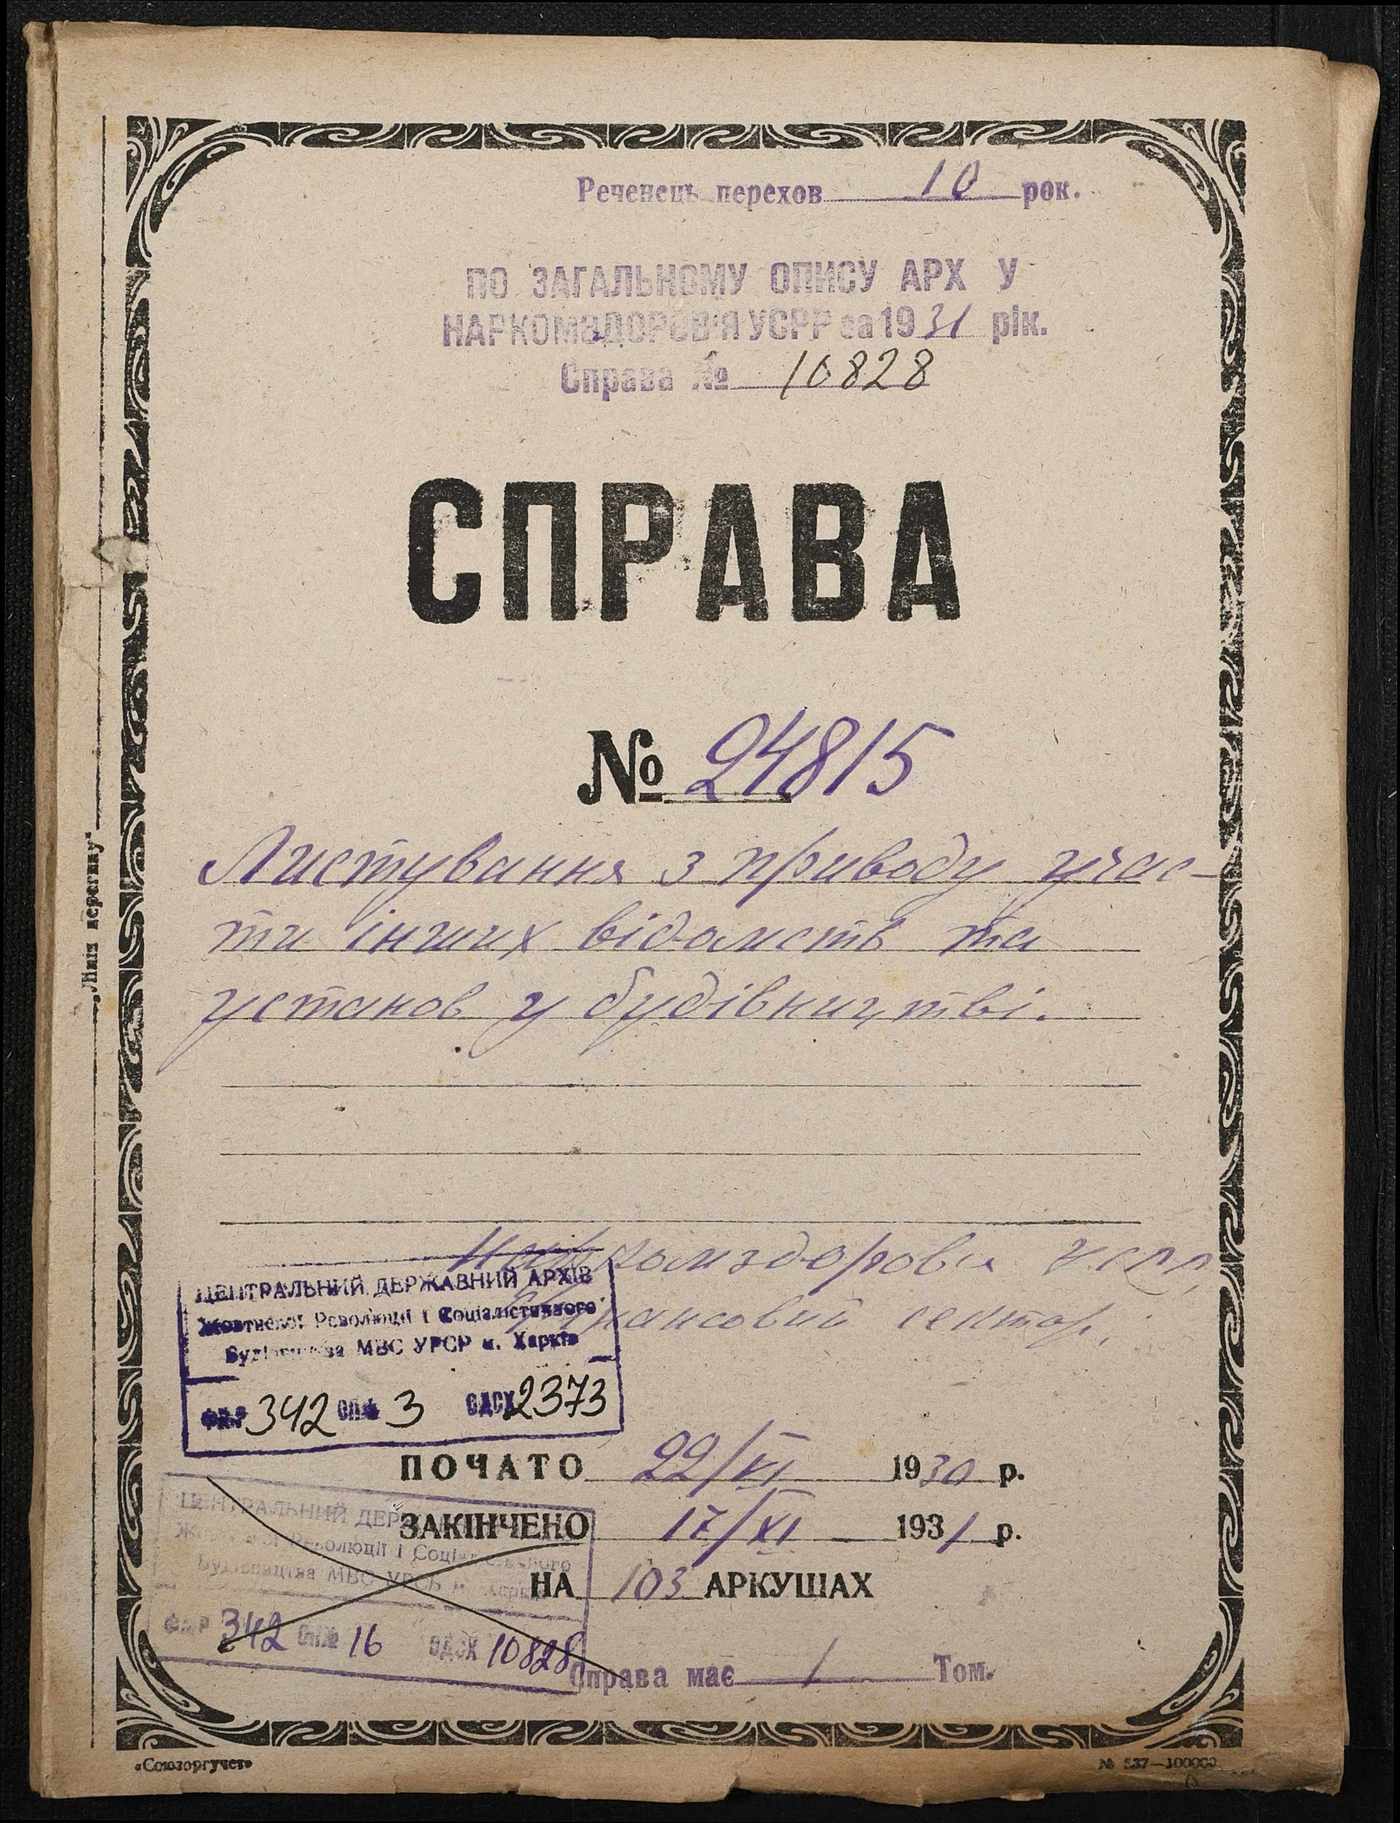 Реченець перехов 10 рок.
ПО ЗАГАЛЬНОМУ ОПИСУ АРХ У
НАРКОМЗДОРОВ'Я УСРР за 1931 рік.
Справа № 10828
СПРАВА
№ 24815
Листування з приводу учас-
ти інших відомств та
установ у будівництві.
Наркомздоров'я УСРР,
Фінансовий сектор.
ЦЕНТРАЛЬНИЙ ДЕРЖАВНИЙ АРХІВ
Жовтневої Революції і Соціалістичного
Будівництва МВС УРСР м. Харків
ФНР 342 ОП№ 3 ОДСХ 2373
ПОЧАТО 22/VI 1930 р.
ЗАКІНЧЕНО 17/XI 1931 р.
НА 103 АРКУШАХ
ЦЕНТРАЛЬНИЙ ДЕР
Революції і Соціалістичного
Будівництва МВС УРСР м. Харків
ФНР 342 ОП№ 16 ОДСХ 10828
Справа має 1 Том.
„Лінія перегину"
«Союзоргучет»
№ 537—100000